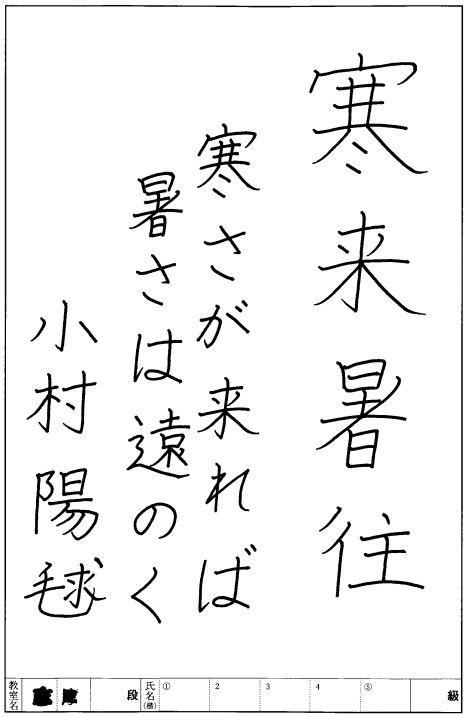 寒来暑往
寒さが来れば
暑さは遠のく
小村陽毬
教室名
段
氏名(楷)
① 2 3 4 ⑤
級